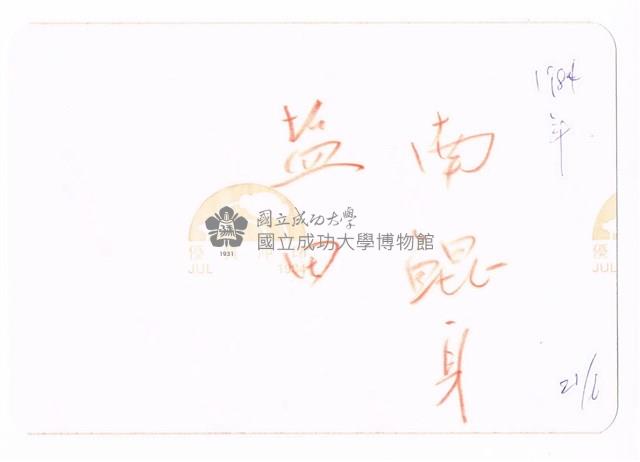 1984年
南鯤身
盐田
國立成功大學
國立成功大學博物館
1931
優
JUL
優
JUL